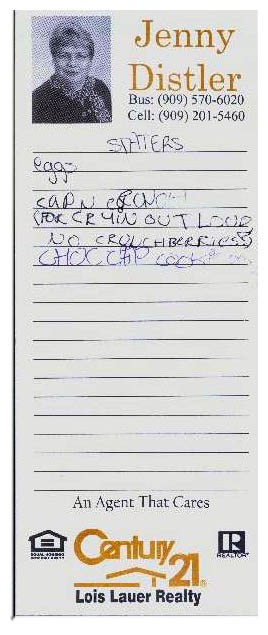 Jenny
Distler
Bus: (909) 570-6020
Cell: (909) 201-5460
STATERS
eggs
CAP N CRUNCH
(FOR CRYIN OUT LOUD
NO CRUNCHBERRIES)
CHOC CHIP
An Agent That Cares
EQUAL HOUSING
OPPORTUNITY
Century 21®
R
REALTOR®
Lois Lauer Realty